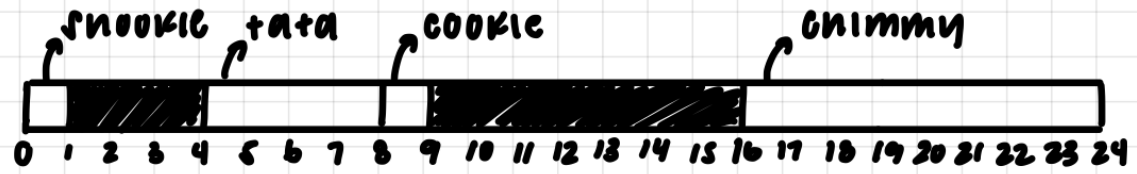 snookie tata cookie chimmy
0 1 2 3 4 5 6 7 8 9 10 11 12 13 14 15 16 17 18 19 20 21 22 23 24